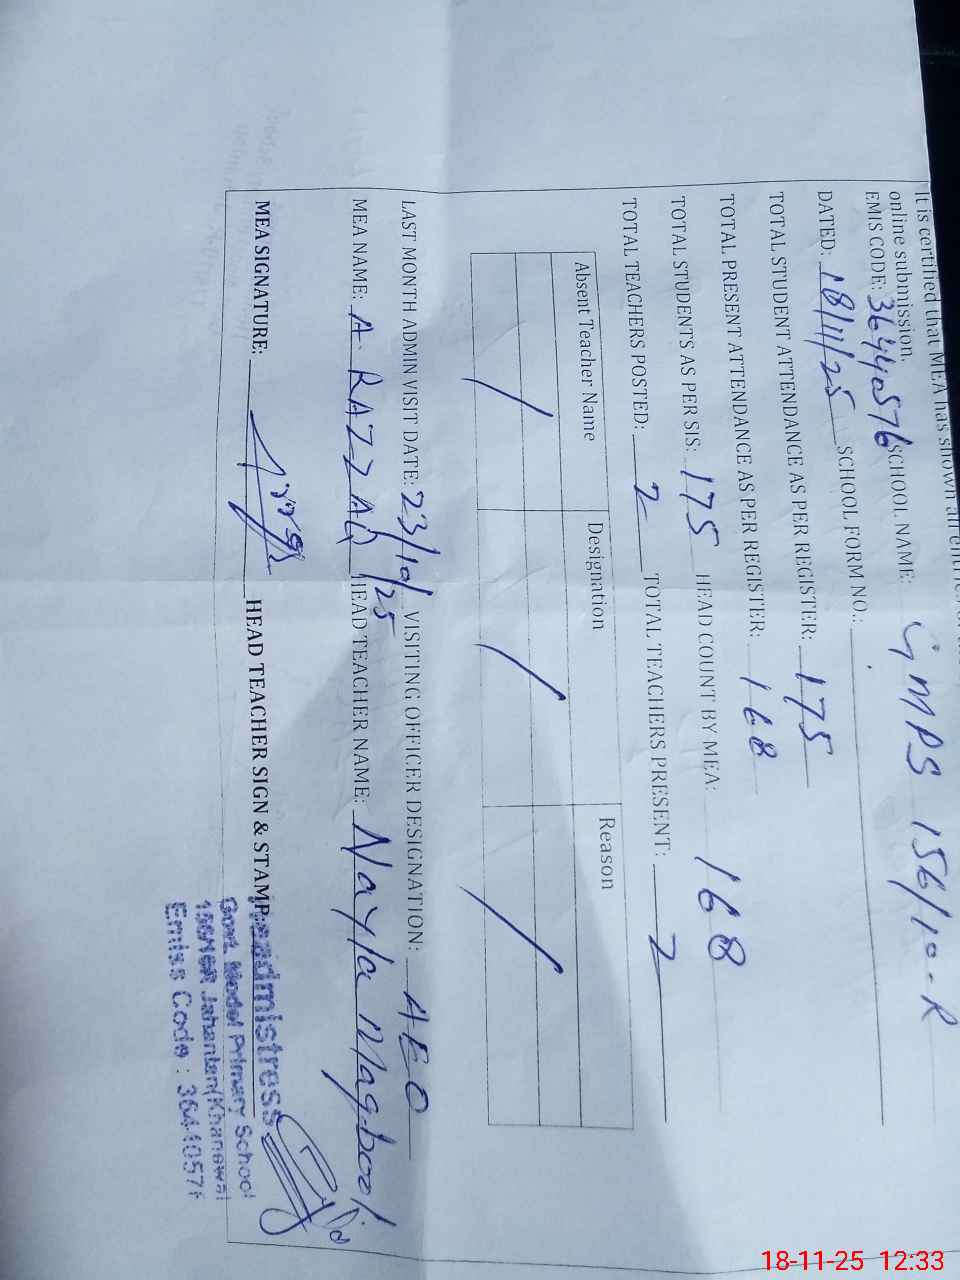 It is certified that MEA has shown
online submission.
EMIS CODE: 36440576 SCHOOL NAME: GMPS 156/10-R
DATED: 18/11/25 SCHOOL FORM NO.:
TOTAL STUDENT ATTENDANCE AS PER REGISTER: 175
TOTAL PRESENT ATTENDANCE AS PER REGISTER: 168
TOTAL STUDENTS AS PER SIS: 175 HEAD COUNT BY MEA: 168
TOTAL TEACHERS POSTED: 2 TOTAL TEACHERS PRESENT: 2
Absent Teacher Name Designation Reason
LAST MONTH ADMIN VISIT DATE: 23/10/25 VISITING OFFICER DESIGNATION: AEO
MEA NAME: A. RAZZAQ HEAD TEACHER NAME: Nayla Maqbool
MEA SIGNATURE: HEAD TEACHER SIGN & STAMP
Headmistress
Govt. Model Primary School
Jahanian (Khanewal
Emiss Code : 3644057
18-11-25 12:33